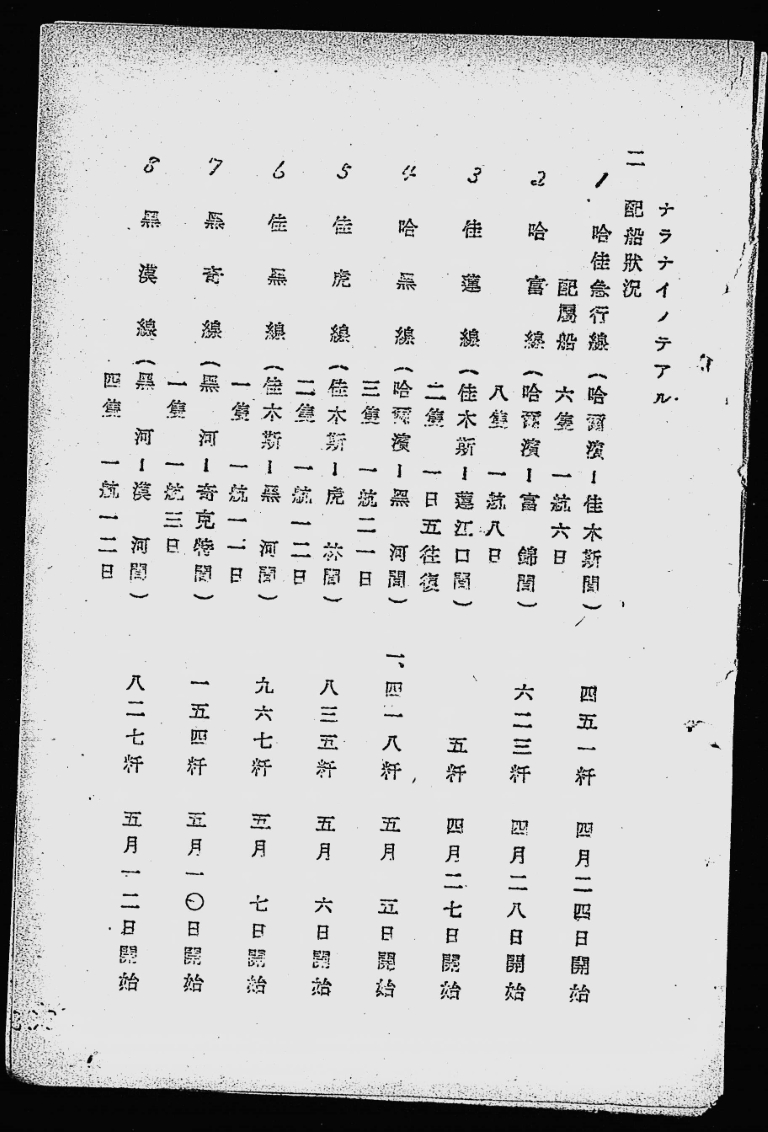 ナラナイノデアル
二 配船狀况
1 哈佳急行線(哈爾濱ー佳木斯間) 四五一粁 四月二四日開始
配屬船 六隻 一航六日
2 哈富線(哈爾濱ー富錦間) 六二三粁 四月二八日開始
八隻 一航八日
3 佳蓮線(佳木斯ー蓮江口間) 五粁 四月二七日開始
二隻 一日五往復
4 哈黑線(哈爾濱ー黑河間) 一、四一八粁 五月五日開始
三隻 一航二一日
5 佳虎線(佳木斯ー虎林間) 八三五粁 五月六日開始
二隻 一航一二日
6 佳黑線(佳木斯ー黑河間) 九六七粁 五月七日開始
一隻 一航一一日
7 黑奇線(黑河ー奇克特間) 一五四粁 五月一〇日開始
一隻 一航三日
8 黑漠線(黑河ー漠河間) 八二七粁 五月一二日開始
四隻 一航一二日